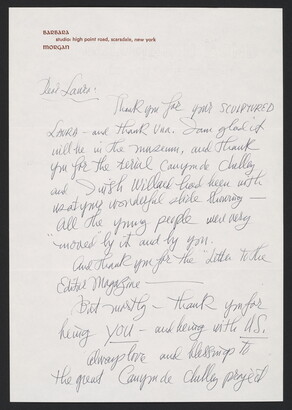 BARBARA
studio: high point road, scarsdale, new york
MORGAN
Dear Laura -
Thank you for your SCULPTURED
LAURA - and thank Una. I am glad it
will be in the museum, and thank
you for the aerial Canyon de Chelley
and I wish Willard had been with
us at your wonderful slide showing -
All the young people were very
moved by it and by you.
And thank you for the "Letter to the
Editor Magazine -
But mostly - thank you for
being YOU - and being with US.
always love and blessings to
the great Canyon de Chelley project